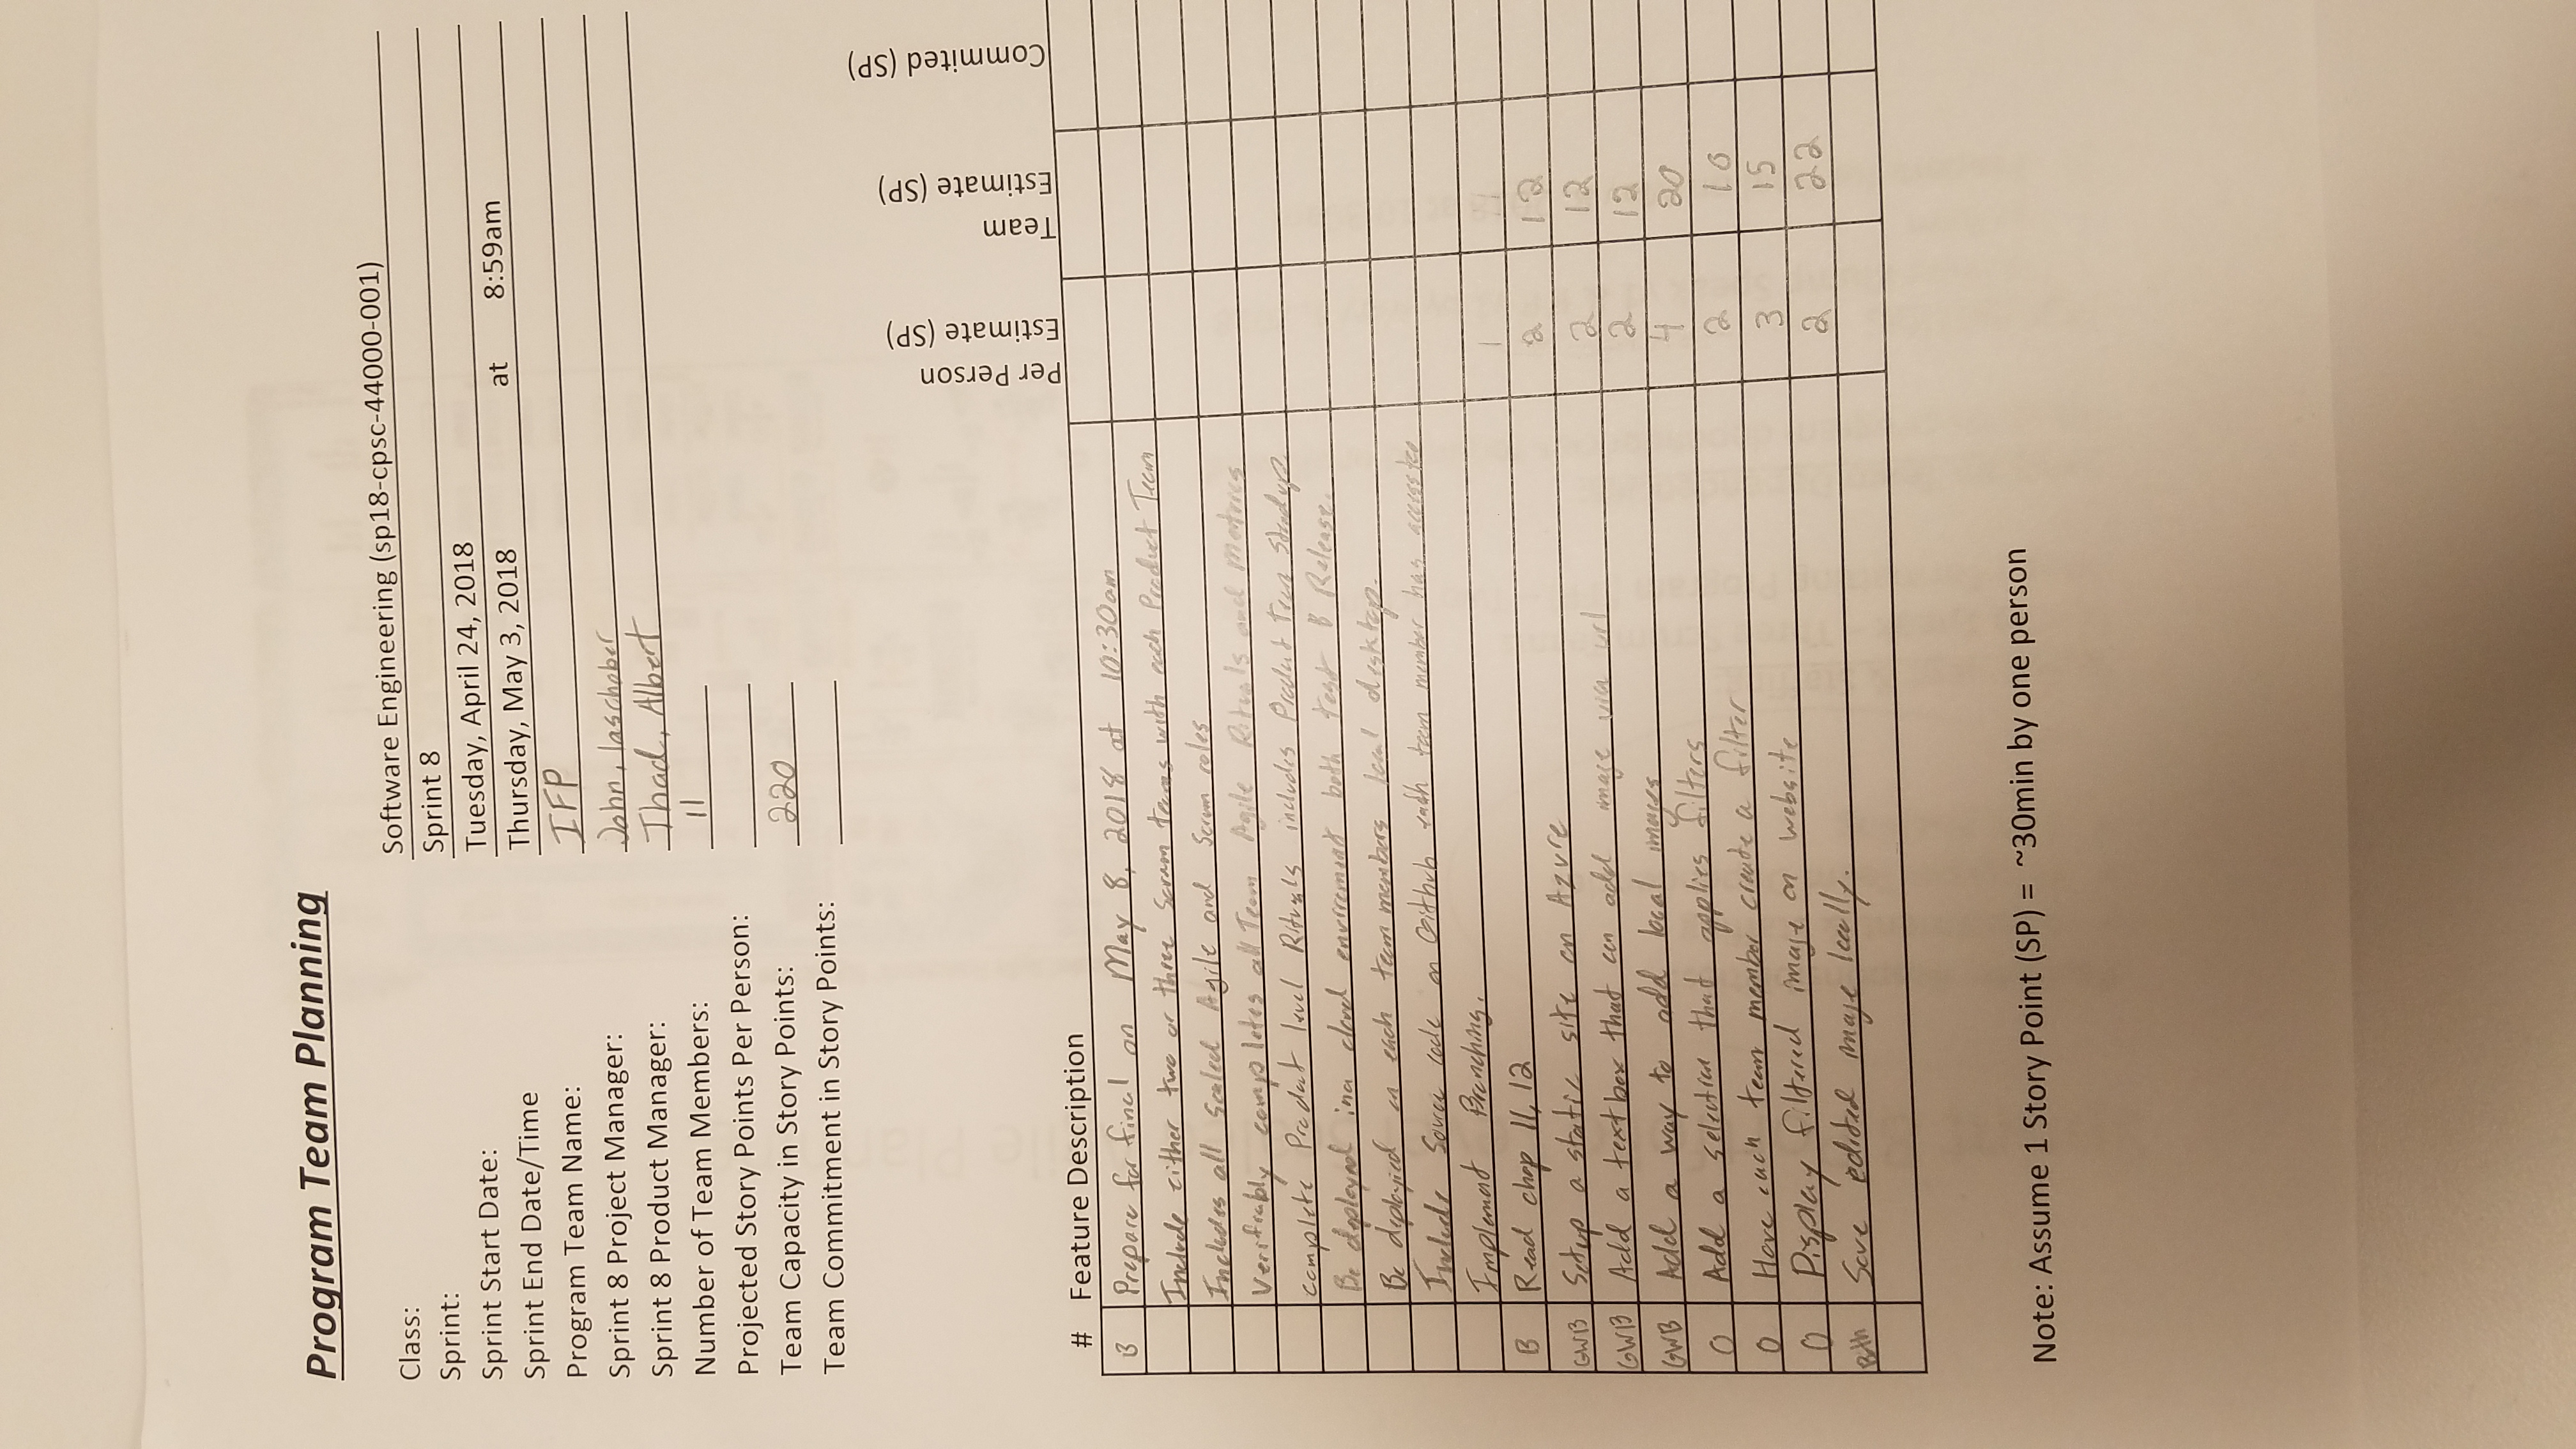 Program Team Planning
Class: Software Engineering (sp18-cpsc-44000-001)
Sprint: Sprint 8
Sprint Start Date: Tuesday, April 24, 2018
Sprint End Date/Time Thursday, May 3, 2018 at 8:59am
Program Team Name: IFP
Sprint 8 Project Manager: John, laschober
Sprint 8 Product Manager: Thad, Albert
Number of Team Members: 11
Projected Story Points Per Person:
Team Capacity in Story Points: 220
Team Commitment in Story Points:
# Feature Description Per Person Estimate (SP) Team Estimate (SP) Commited (SP)
B Prepare for final on May 8, 2018 at 10:30am
Include either two or three Scrum teams with each Product Team
Includes all Scaled Agile and Scrum roles
Verifiably completes all Team Agile Rituals and Metrics
complete Product level Rituals includes Product Team Standup.
Be deployed in a cloud both test & Release.
Be deployied on each team members local desktop.
Include Source code on Github each team member has access too
Implement Branching.
B Read chap 11, 12 1 11
GWB Setup a static site on Azure 2 12
GWB Add a textbox that can add image via url 2 12
GWB Add a way to add local images 2 12
O Add a selection that applies filters 4 20
O Have each team member create a filter 2 10
O Display filtered image on website 3 15
Both Save edited image locally. 2 22
Note: Assume 1 Story Point (SP) = ~30min by one person